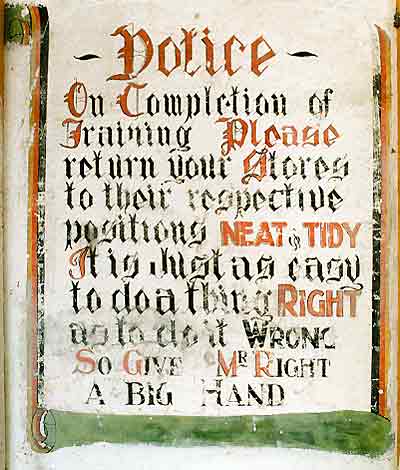 - Notice -
On Completion of
Training Please
return your Stores
to their respective
positions NEAT & TIDY
It is Just as easy
to do a thing RIGHT
as to do it WRONG
SO GIVE MR RIGHT
A BIG HAND